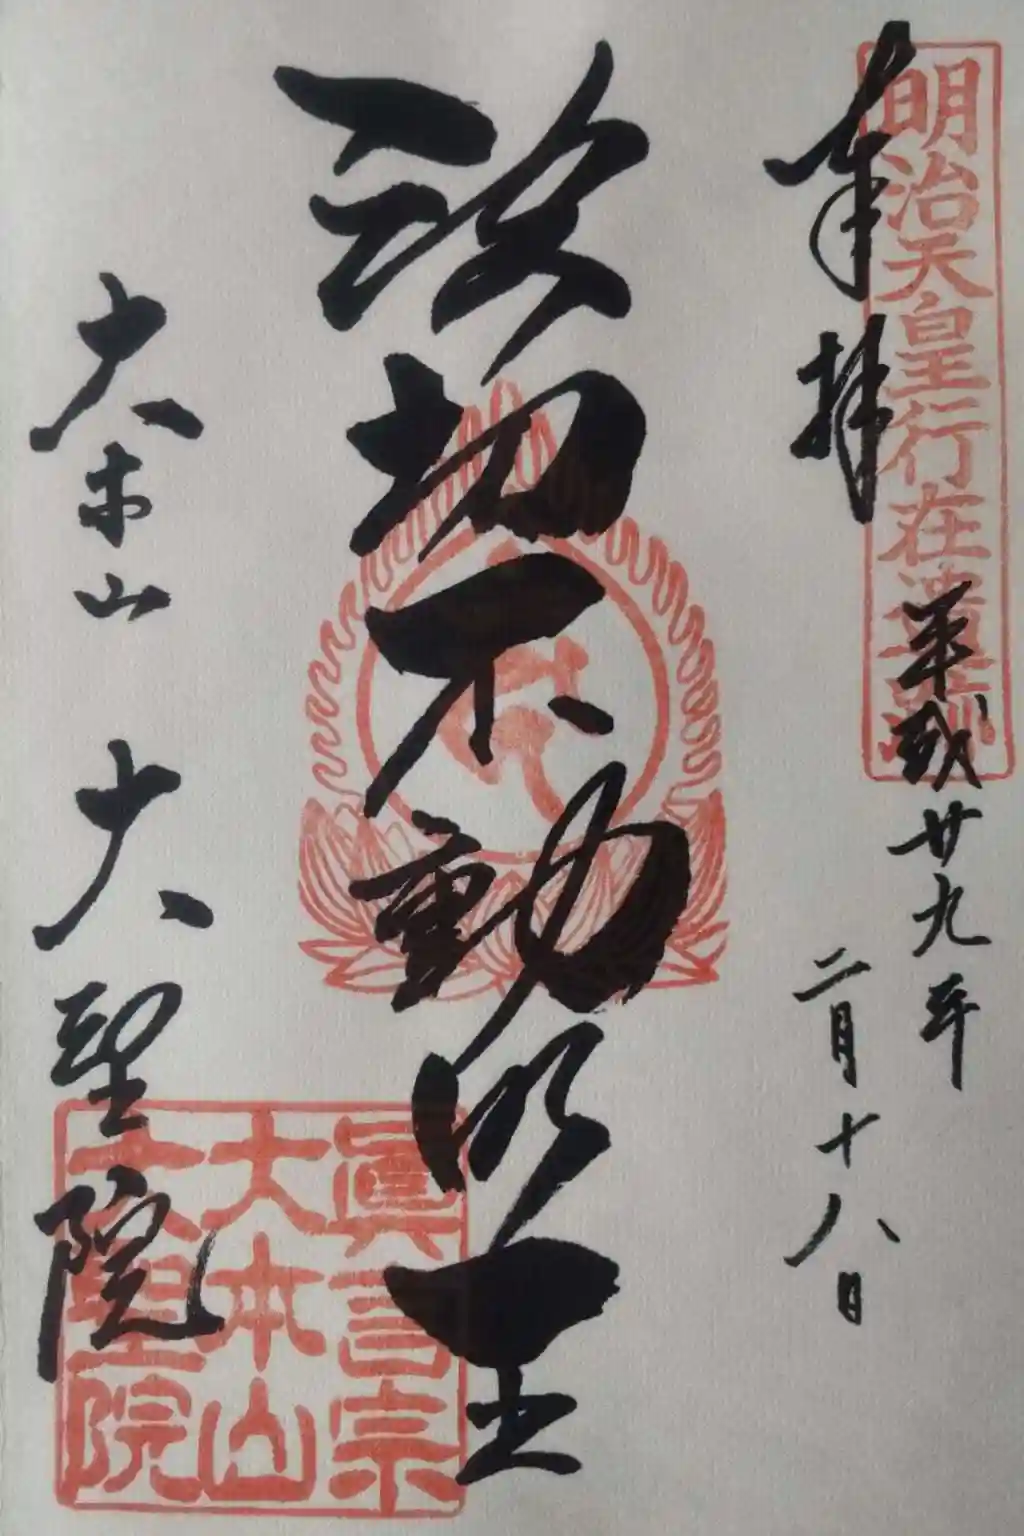 奉拝
明治天皇行在遺跡
平成廿九年
二月十八日
波切不動明王
大本山 大聖院
眞言宗
大本山
大聖院